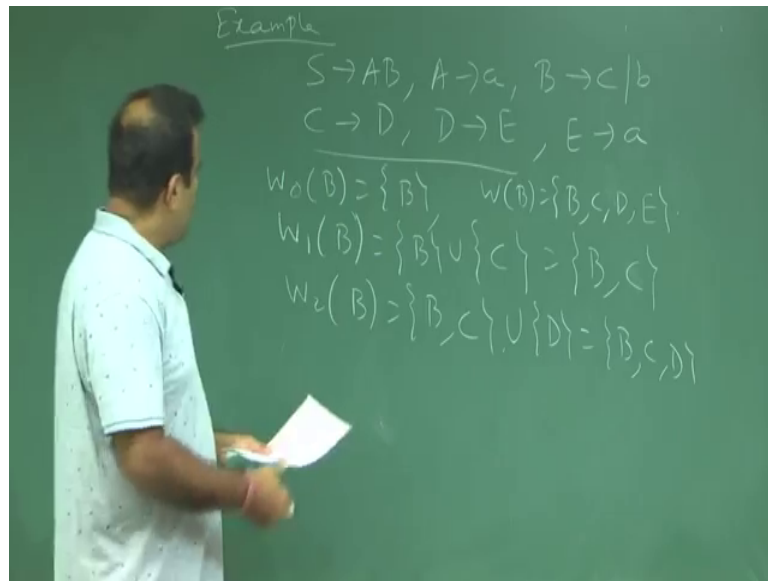 Example
S→AB, A→a, B→C/b
C→D, D→E, E→a
W₀(B)={B}, W(B)={B,C,D,E}.
W₁(B)={B}∪{C}={B,C}
W₂(B)={B,C}∪{D}={B,C,D}